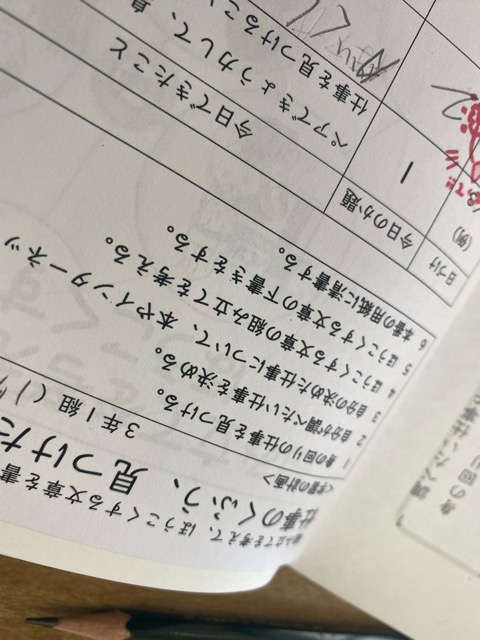 組み立てを考えて、ほうこくする文章を書
仕事のくふう、見つけた
3年1組（
＜学習の計画＞
1 身の回りの仕事を見つける。
2 自分が調べたい仕事を決める。
3 自分の決めた仕事について、本やインターネッ
4 ほうこくする文章の組み立てを考える。
5 ほうこくする文章の下書きをする。
6 本番の用紙に清書する。
日づけ
今日のか題
今日できたこと
(例)
1
ペアできょう力して、身
仕事を見つけるこ
2
身の回り